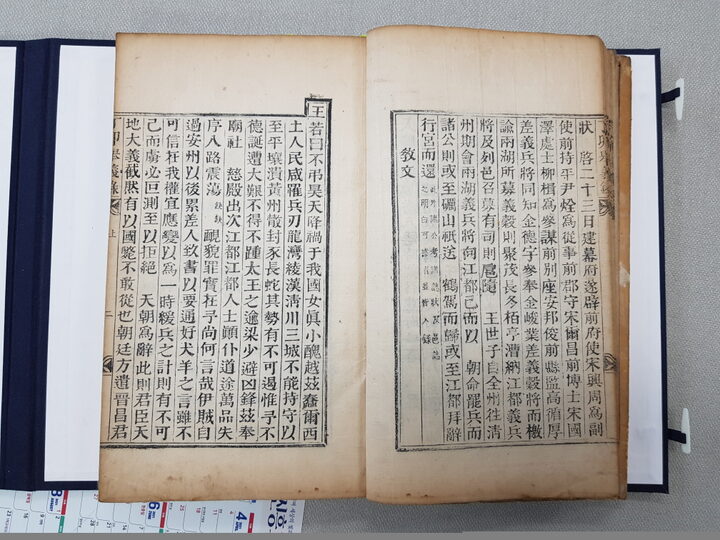 狀 啓二十三日建幕府遂辟前府使宋興周爲副
使前持平尹烇爲從事前郡守宋爾昌前博士宋國
澤處士柳楫爲參謀前別座安邦俊前縣監高循厚
差義兵將同知金德宇參奉金峻業差義穀將而檄
諭兩湖所募義穀則聚茂長冬栢亭漕納江都義兵
將及列邑召募有司則扈隨 王世子自全州往淸
州期會兩湖義兵將向江都已而以 朝命罷兵而
諸公則或至礪山祗送 鶴駕而歸或至江都拜辭
行宮而還
敎文
王
若曰不弔昊天降禍于我國女眞小醜越茲蠢爾西
土人民咸罹兵刃龍灣綾漢淸川三城不能持守以
至平壤潰黃州散封豕長蛇其勢有不可遏惟予不
德誕遭大艱不得不踵太王之逾梁少避凶鋒茲奉
廟社 慈殿出次江都江都人士顚仆道途萬品失
序入路震蕩 靦貌罪實在予尙何言哉伊賊自
過安州以後累差人致書以要通好犬羊之言雖不
可信在我權宜應變以爲一時緩兵之計則有不可
已而虜必回測至以拒絶 天朝爲辭此則君臣天
地大義截然有以國斃不敢從也朝廷方遣晉昌君